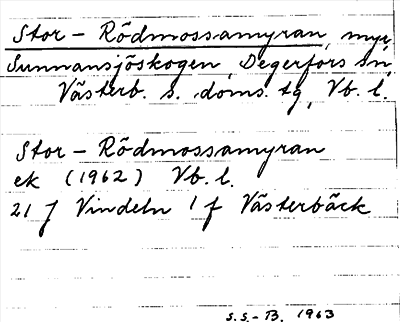 Stor-Rödmossamyran, myr,
Sunnansjöskogen, Degerfors sn,
Västerb. s. doms. tg, Vb. l.
Stor-Rödmossamyran
ek (1962) Vb. l.
21 J Vindeln 1 f Västerbäck
S.S.-B. 1963